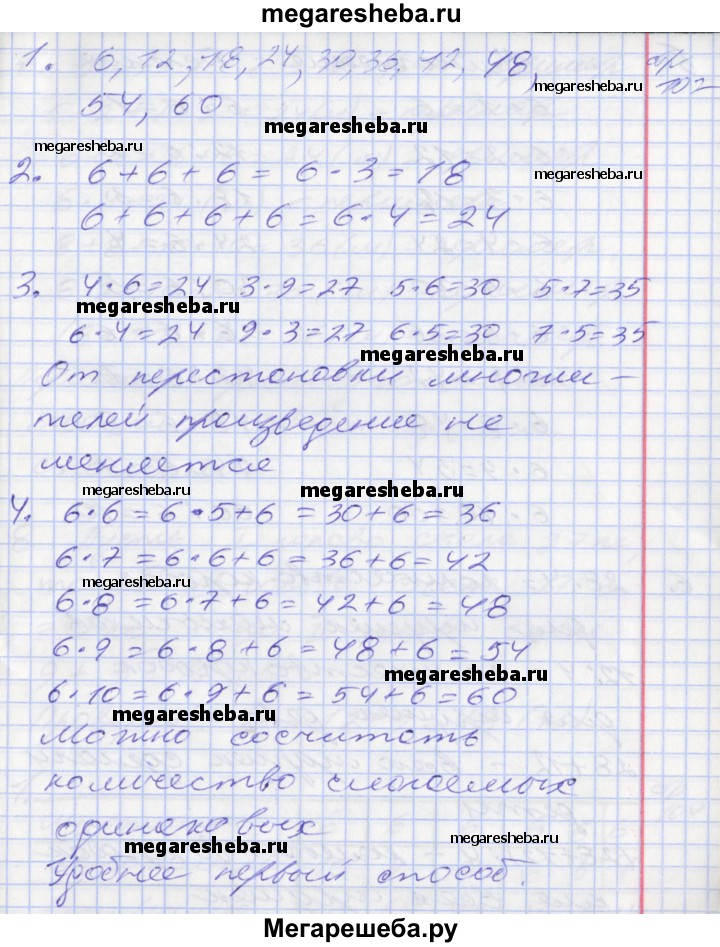 megaresheba.ru
1. 6, 12, 18, 24, 30, 36, 42, 48, стр.
megaresheba.ru 107
54, 60
megaresheba.ru
megaresheba.ru
2. 6 + 6 + 6 = 6 · 3 = 18
megaresheba.ru
6 + 6 + 6 + 6 = 6 · 4 = 24
3. 4 · 6 = 24 3 · 9 = 27 5 · 6 = 30 5 · 7 = 35
megaresheba.ru
6 · 4 = 24 9 · 3 = 27 6 · 5 = 30 7 · 5 = 35
megaresheba.ru
От перестановки множи-
телей произведение не
меняется
megaresheba.ru megaresheba.ru
4. 6 · 6 = 6 · 5 + 6 = 30 + 6 = 36
6 · 7 = 6 · 6 + 6 = 36 + 6 = 42
megaresheba.ru
6 · 8 = 6 · 7 + 6 = 42 + 6 = 48
6 · 9 = 6 · 8 + 6 = 48 + 6 = 54
megaresheba.ru
6 · 10 = 6 · 9 + 6 = 54 + 6 = 60
megaresheba.ru
Можно сосчитать
количество слогаемых
одинаковых
megaresheba.ru megaresheba.ru
Удобнее первый способ.
Мегарешеба.ру